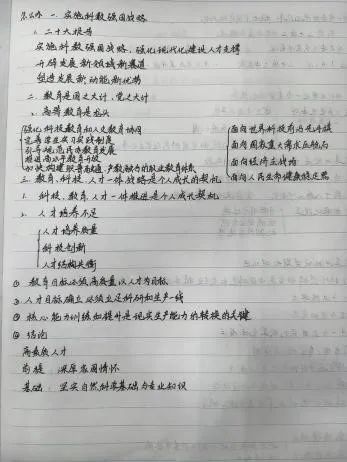 一、实施科教强国战略
1、二十大报告
实施科教强国战略，强化现代化建设人才支撑
开辟发展新领域新赛道
塑造发展新动能新优势
二、教育是国之大计，党之大计
1、高等教育是龙头
强化科技教育和人文教育协同
完善学生实习实践制度
引导规范民办教育发展
推进高水平教育开放
加快构建职普融通、产教融合的职业教育体系
面向世界科技前沿
面向国家重大需求
面向经济主战场
面向人民生命健康
三、教育、科技、人才一体战略是个人成长的契机
1、科技、教育、人才一体推进是个人成长契机
2、人才培养不足
人才培养质量
科技创新
人才结构失衡
① 教育目标必须高质量以人才为目标
② 人才目标确立必须立足科研和生产一线
③ 核心能力训练和提升是现实生产能力的转换的关键
④ 结论
高素质人才
前提：深厚家国情怀
基础：坚实自然科学基础与专业知识